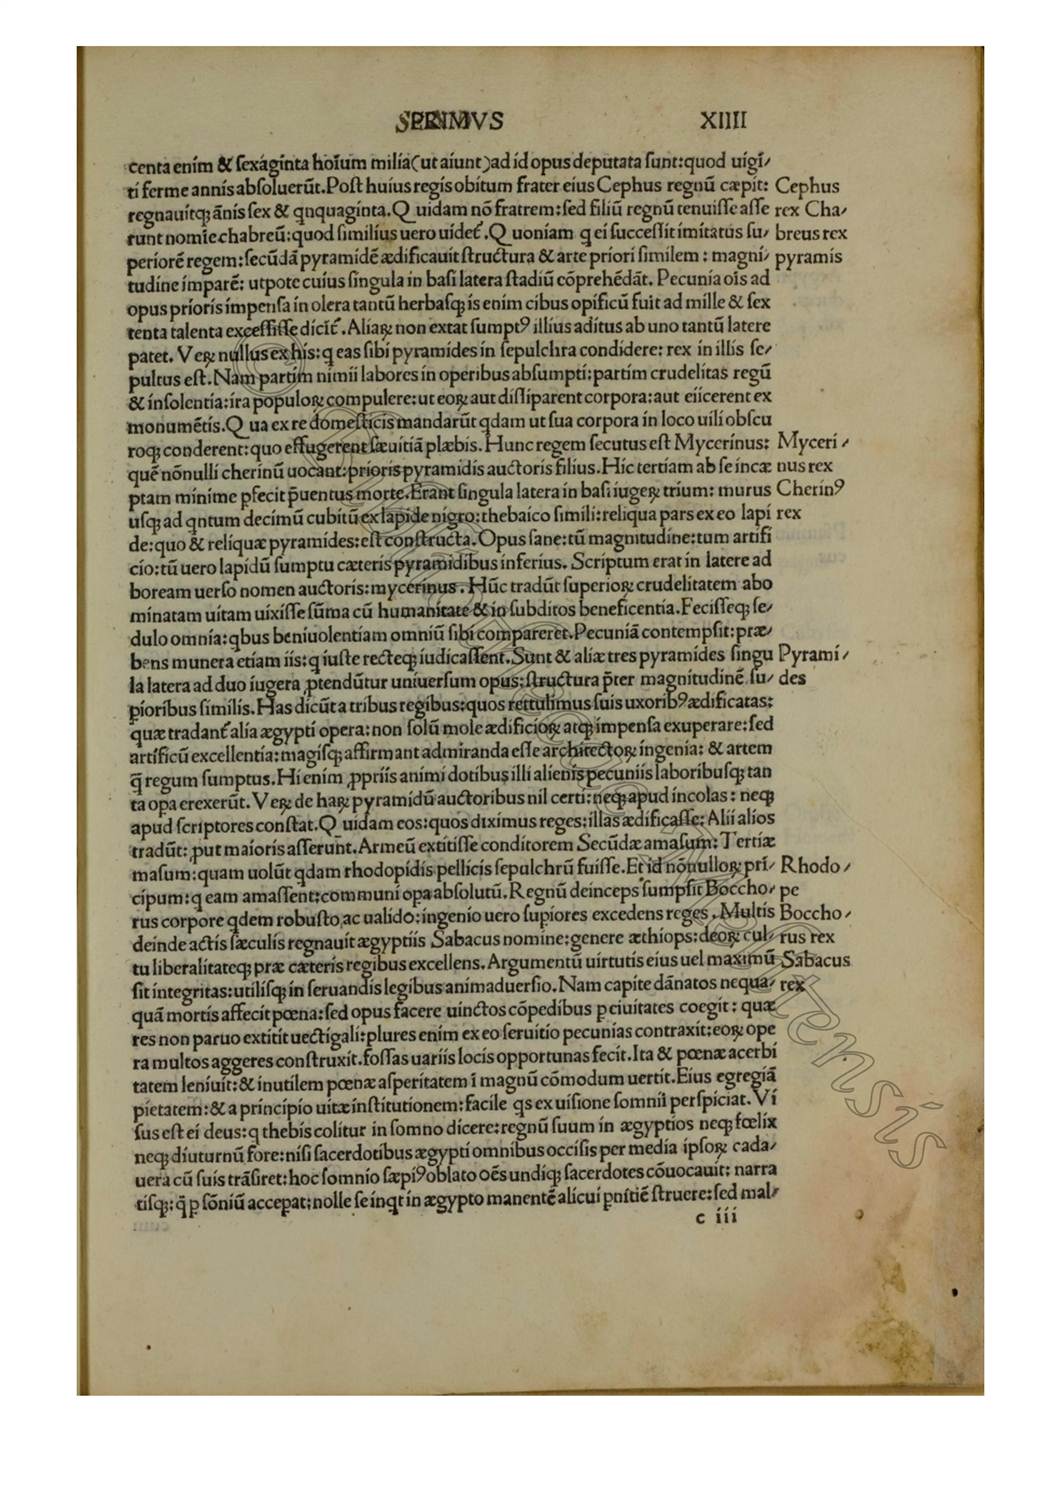 PRIMVS XIIII
centa enim & ſexaginta hoĩum milia(ut aiunt)ad id opus deputata ſunt:quod uigĩ/
ti ferme annis abſoluerũt.Poſt huius regis obitum frater eius Cephus regnũ cæpit: Cephus
regnauitq; ãnis ſex & qnquaginta.Q uidam nõ fratrem:ſed filiũ regnũ tenuiſſe aſſe rex Cha/
runt nomie chabreũ:quod ſimilius uero uidet̃.Q uoniam q ei ſucceſſit imitatus ſu/ breus rex
periorẽ regem:ſecũdã pyramidẽ ædificauit ſtructura & arte priori ſimilem: magni/ pyramis
tudine imparẽ: utpote cuius ſingula in baſi latera ſtadiũ cõprehẽdãt. Pecunia oĩs ad
opus prioris impenſa in olera tantũ herbaſq; is enim cibus opificũ fuit ad mille & ſex
tenta talenta exceſſiſſe dicit̃.Aliaꝝ non extat ſumptꝰ illius aditus ab uno tantũ latere
patet. Veꝝ nullus ex his:q eas ſibi pyramides in ſepulchra condidere: rex in illis ſe/
pultus eſt.Nam partim nimii labores in operibus abſumpti:partim crudelitas regũ
& inſolentia:ira populoꝝ compulere:ut eoꝝ aut diſſiparent corpora:aut eiicerent ex
monumẽtis.Q ua ex re domeſticis mandarũt qdam ut ſua corpora in loco uili obſcu
roq; conderent:quo effugerent ſæuitiã plæbis. Hunc regem ſecutus eſt Mycerinus: Myceri/
quẽ nõnulli cherinũ uocant:prioris pyramidis auctoris filius.Hic tertiam ab ſe incæ nus rex
ptam minime pfecit p̃uentus morte.Erant ſingula latera in baſi iugeꝝ trium: murus Cherinꝰ
uſq; ad qntum decimũ cubitũ ex lapide nigro:thebaico ſimili:reliqua pars ex eo lapi rex
de:quo & reliquæ pyramides:eſt conſtructa.Opus ſane:tũ magnitudine:tum artifi
cio:tũ uero lapidũ ſumptu cæteris pyramidibus inferius. Scriptum erat in latere ad
boream uerſo nomen auctoris:mycerinus. Hũc tradũt ſuperioꝝ crudelitatem abo
minatam uitam uixiſſe ſũma cũ humanitate & in ſubditos beneficentia.Feciſſeq; ſe/
dulo omnia:qbus beniuolentiam omniũ ſibi compareret.Pecuniã contempſit:præ/
bens munera etiam iis:q iuſte recteq; iudicaſſent.Sunt & aliæ tres pyramides ſingu Pyrami/
la latera ad duo iugera ꝓtendũtur uniuerſum opus:ſtructura p̃ter magnitudinẽ ſu/ des
pioribus ſimilis.Has dicũt a tribus regibus:quos rettulimus ſuis uxoribꝰ ædificatas:
quæ tradant̃ alia ægypti opera:non ſolũ mole ædificioꝝ atq; impenſa exuperare:ſed
artificũ excellentia:magiſq; affirmant admiranda eſſe architectoꝝ ingenia: & artem
q̃ regum ſumptus.Hi enim ꝓpriis animi dotibus illi alienis pecuniis laboribuſq; tan
ta opa erexerũt.Veꝝ de haꝝ pyramidũ auctoribus nil certi:neq; apud incolas: neq;
apud ſcriptores conſtat.Q uidam eos:quos diximus reges:illas ædificaſſe: Alii alios
tradũt:ꝓut maioris aſſerunt.Armeũ extitiſſe conditorem Secũdæ amaſum: Tertiæ
maſum:quam uolũt qdam rhodopidis pellicis ſepulchrũ fuiſſe.Et id nõnulloꝝ prĩ/ Rhodo/
cipum:q eam amaſſent:communi opa abſolutũ.Regnũ deinceps ſumpſit Boccho/ pe
rus corpore qdem robuſto,ac ualido:ingenio uero ſupiores excedens reges. Multis Boccho/
deinde actis ſæculis regnauit ægyptiis Sabacus nomine:genere æthiops:deoꝝ cul/ rus rex
tu liberalitateq; præ cæteris regibus excellens.Argumentũ uirtutis eius uel maximũ Sabacus
ſit integritas:utiliſq; in ſeruandis legibus animaduerſio.Nam capite dãnatos nequa/ rex
quã mortis affecit pœna:ſed opus facere uinctos cõpedibus p ciuitates coegit: quæ
res non paruo extitit uectigali:plures enim ex eo ſeruitio pecunias contraxit:eoꝝ ope
ra multos aggeres conſtruxit.foſſas uariis locis opportunas fecit.Ita & pœnæ acerbi
tatem leniuit:& inutilem pœnæ aſperitatem ĩ magnũ cõmodum uertit.Eius egregiã
pietatem:& a principio uitæ inſtitutionem:facile qs ex uiſione ſomnii perſpiciat.Vi
ſus eſt ei deus:q thebis colitur in ſomno dicere:regnũ ſuum in ægyptios neq; fœlix
neq; diuturnũ fore:niſi ſacerdotibus ægypti omnibus occiſis per media ipſoꝝ cada/
uera cũ ſuis trãſiret:hoc ſomnio ſæpiꝰ oblato oẽs undiq; ſacerdotes cõuocauit: narra
tiſq;:q̃ p ſõniũ accepat:nolle ſe inqt in ægypto manentẽ alicui pnitiẽ ſtruere:ſed mal/
c iii